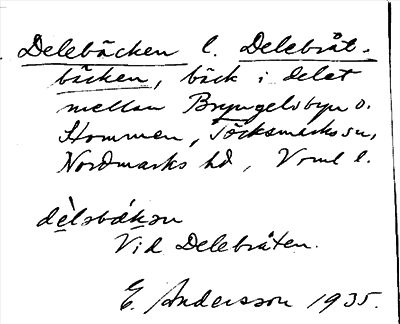 Delebäcken l. Delebråt-
bäcken, bäck i delet
mellan Bryngelsbyn o.
Hommen, Töcksmarks sn,
Nordmarks hd, Vrml l.
dèləbækən
Vid Delebråten.
E. Andersson 1935.